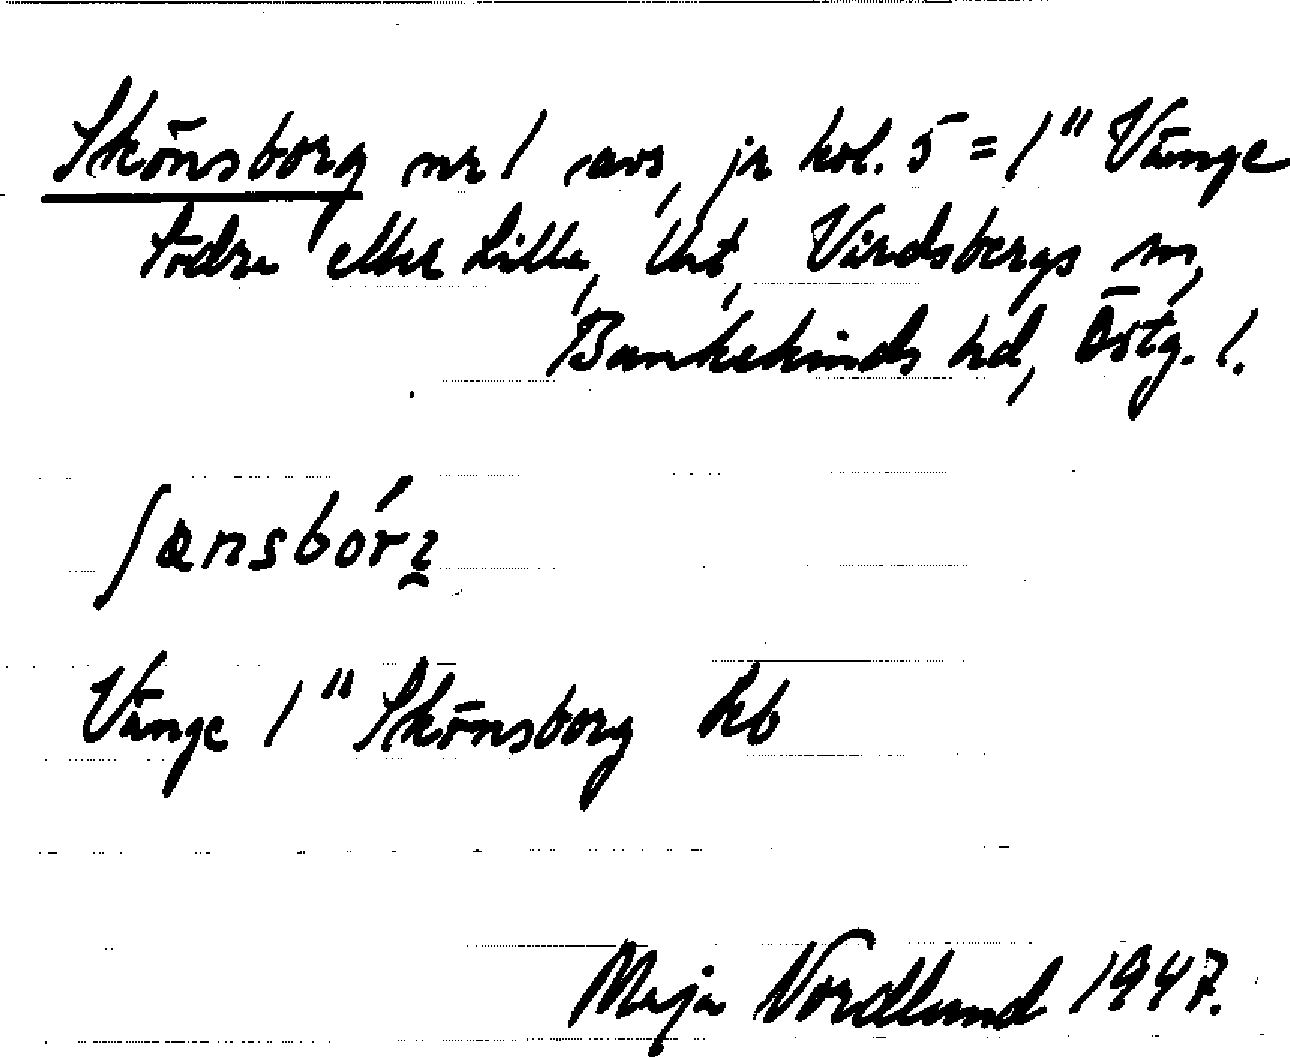 Skönsborg nr 1 avs, jr kol. 5 = 1" Vånge
Södre eller Lille, Utt, Värdsbergs sn,
Bankekinds hd, Östg. l.
ʃønsbór
Vånge 1" Skönsborg kb
Maja Nordlund 1947.